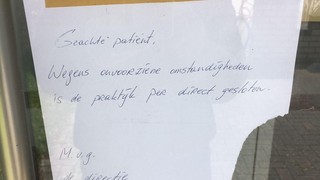 Geachte patient,
Wegens onvoorziene omstandigheden
is de praktijk per direct gesloten.
M.v.g.
de directie